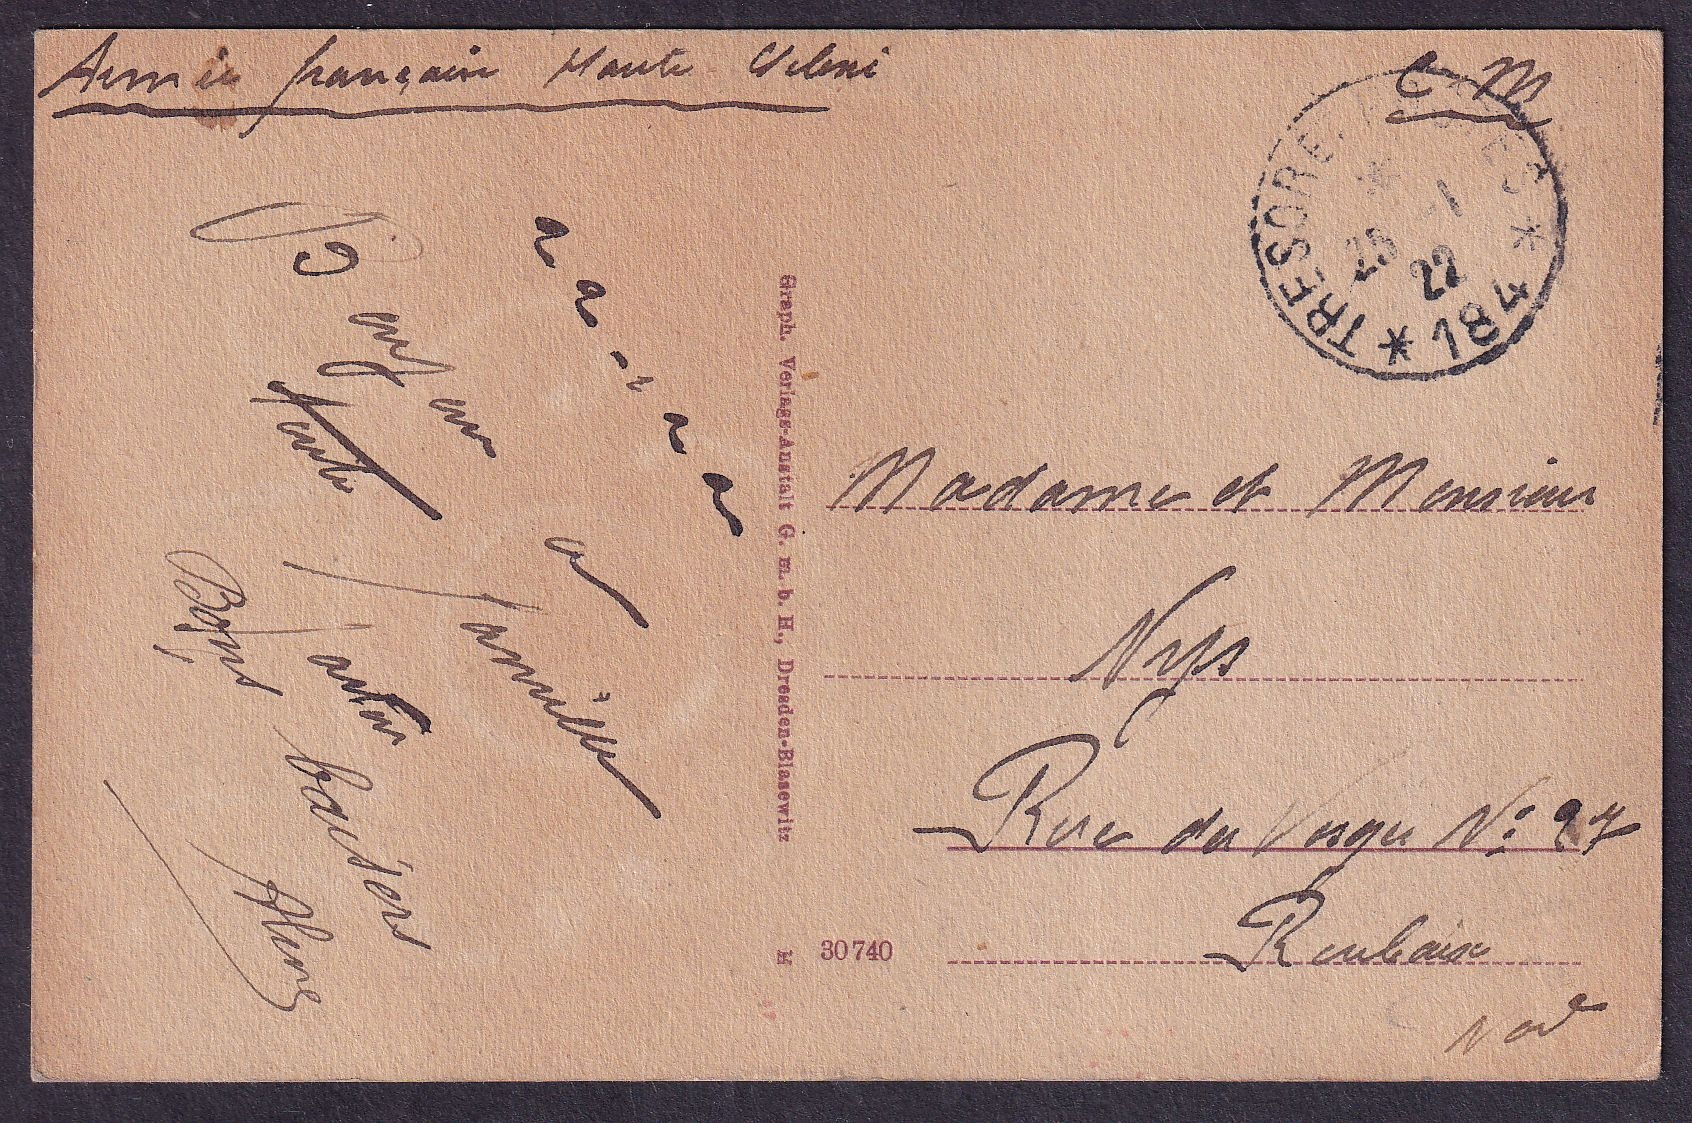 Armée française Haute Silesie
C M
TRESOR ET POSTES
* 184 *
25 -1
22
a a - a a
Bonjour a
toute famille
Bons baisers
Graph. Verlags-Anstalt G. m. b. H., Dresden-Blasewitz
M 30740
Madame et Monsieur
Nys
Rue du Vosges N° 27
Roubaix
Nord